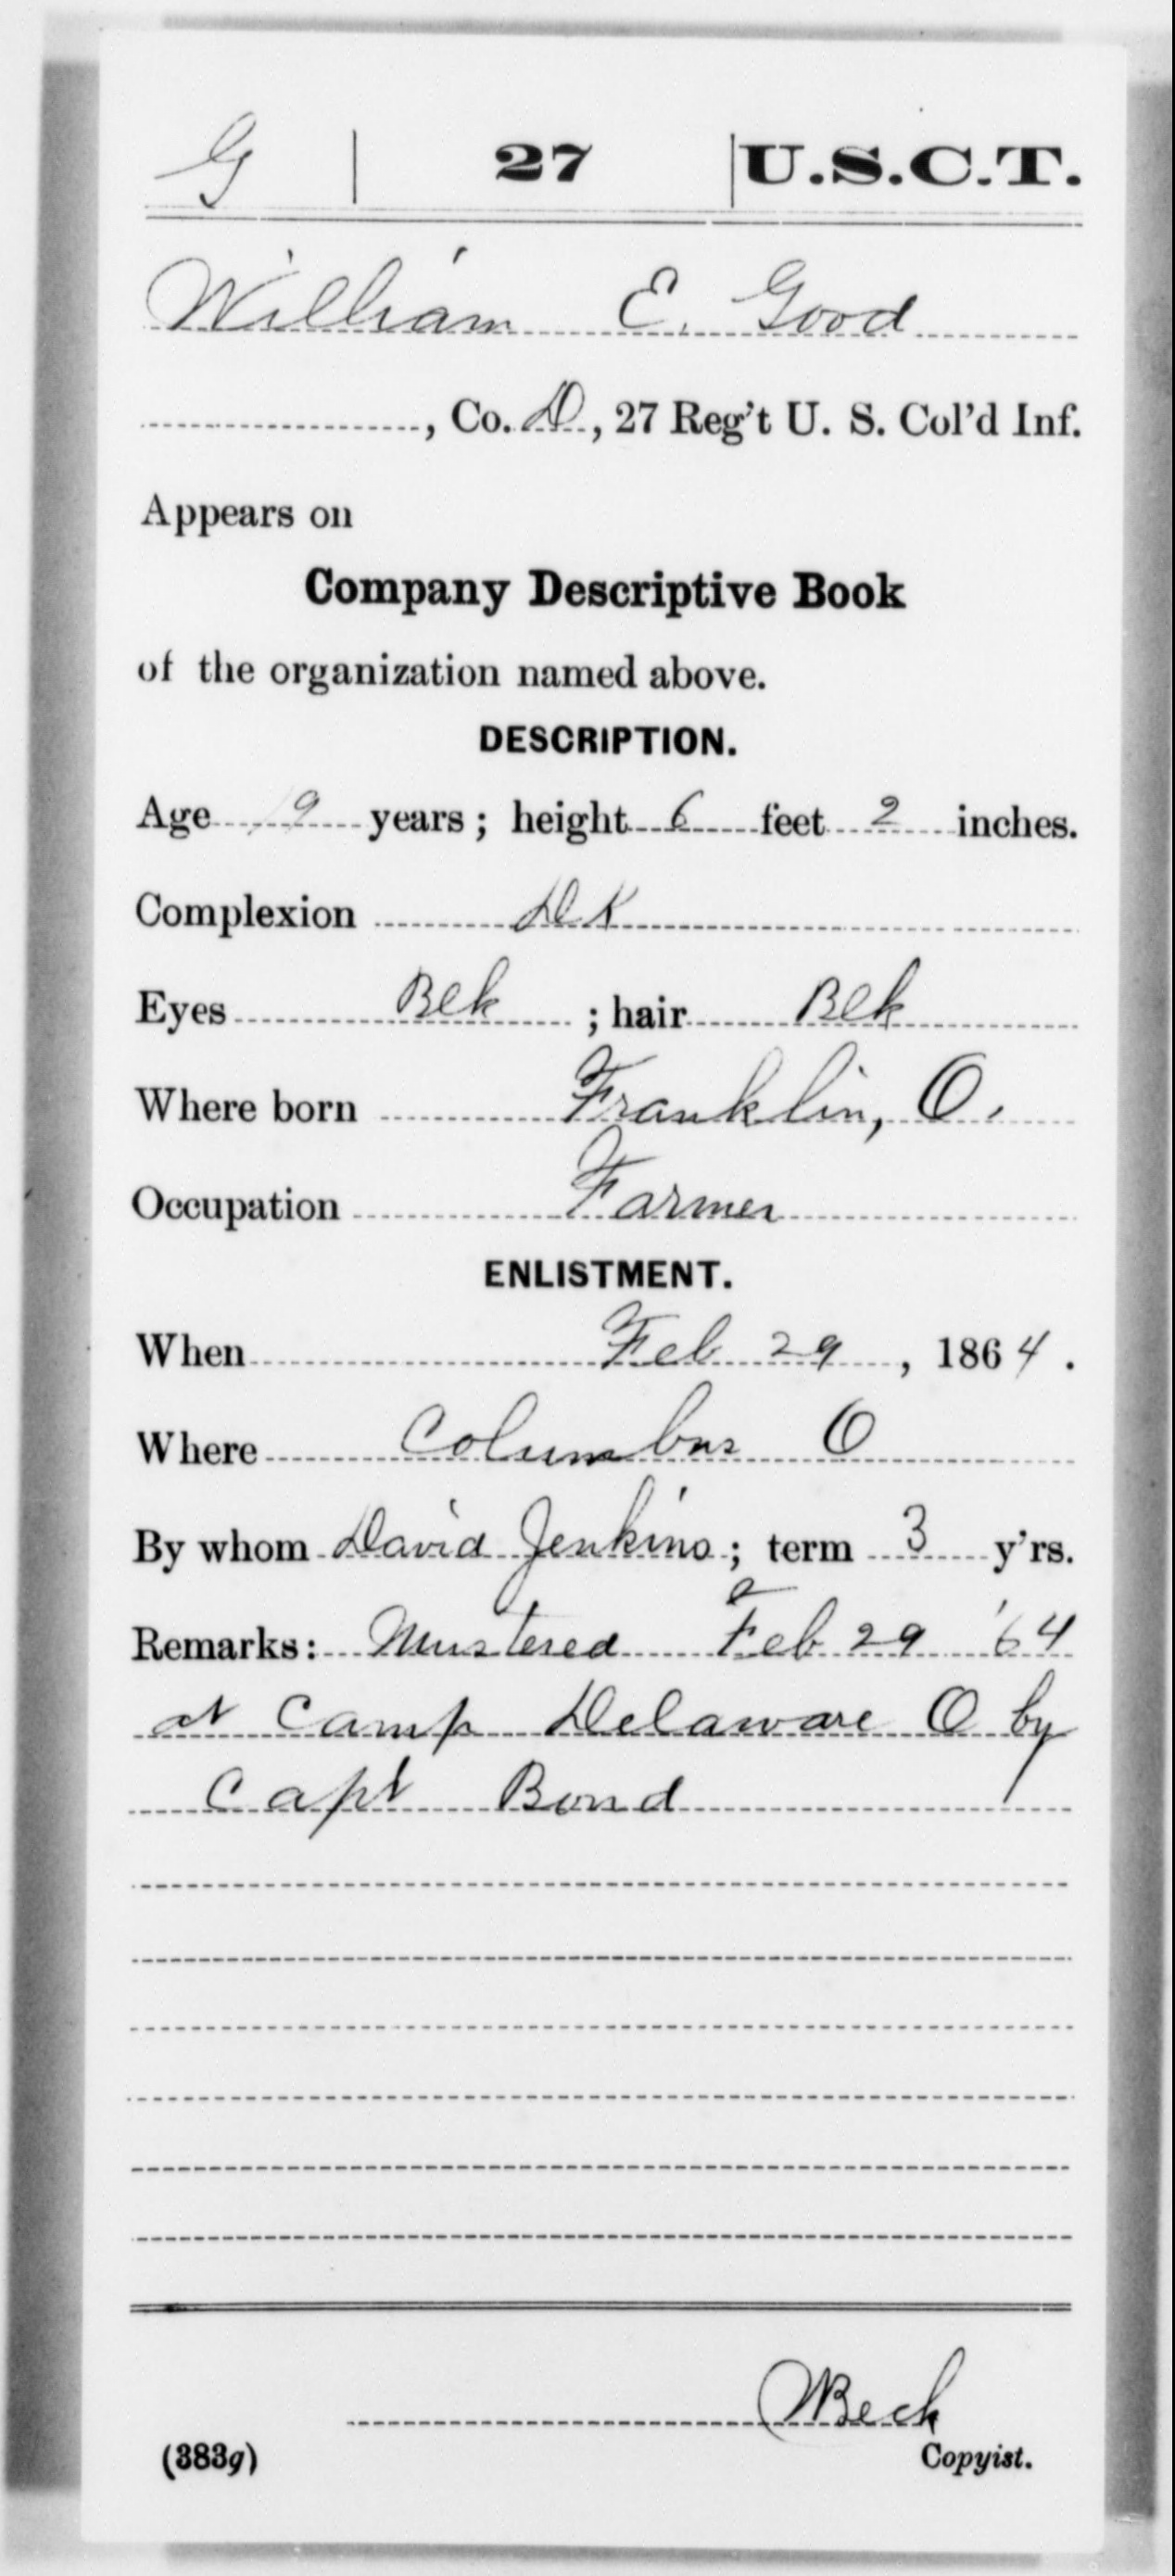 G | 27 | U.S.C.T.
William E. Good
, Co. D, 27 Reg't U. S. Col'd Inf.
Appears on
Company Descriptive Book
of the organization named above.
DESCRIPTION.
Age 19 years; height 6 feet 2 inches.
Complexion DK
Eyes Blk ; hair Blk
Where born Franklin, O.
Occupation Farmer
ENLISTMENT.
When Feb 29, 1864.
Where Columbus O
By whom David Jenkins; term 3 y'rs.
Remarks: Mustered Feb 29 '64
at Camp Delaware O by
Capt Bond
Beck
(383g) Copyist.